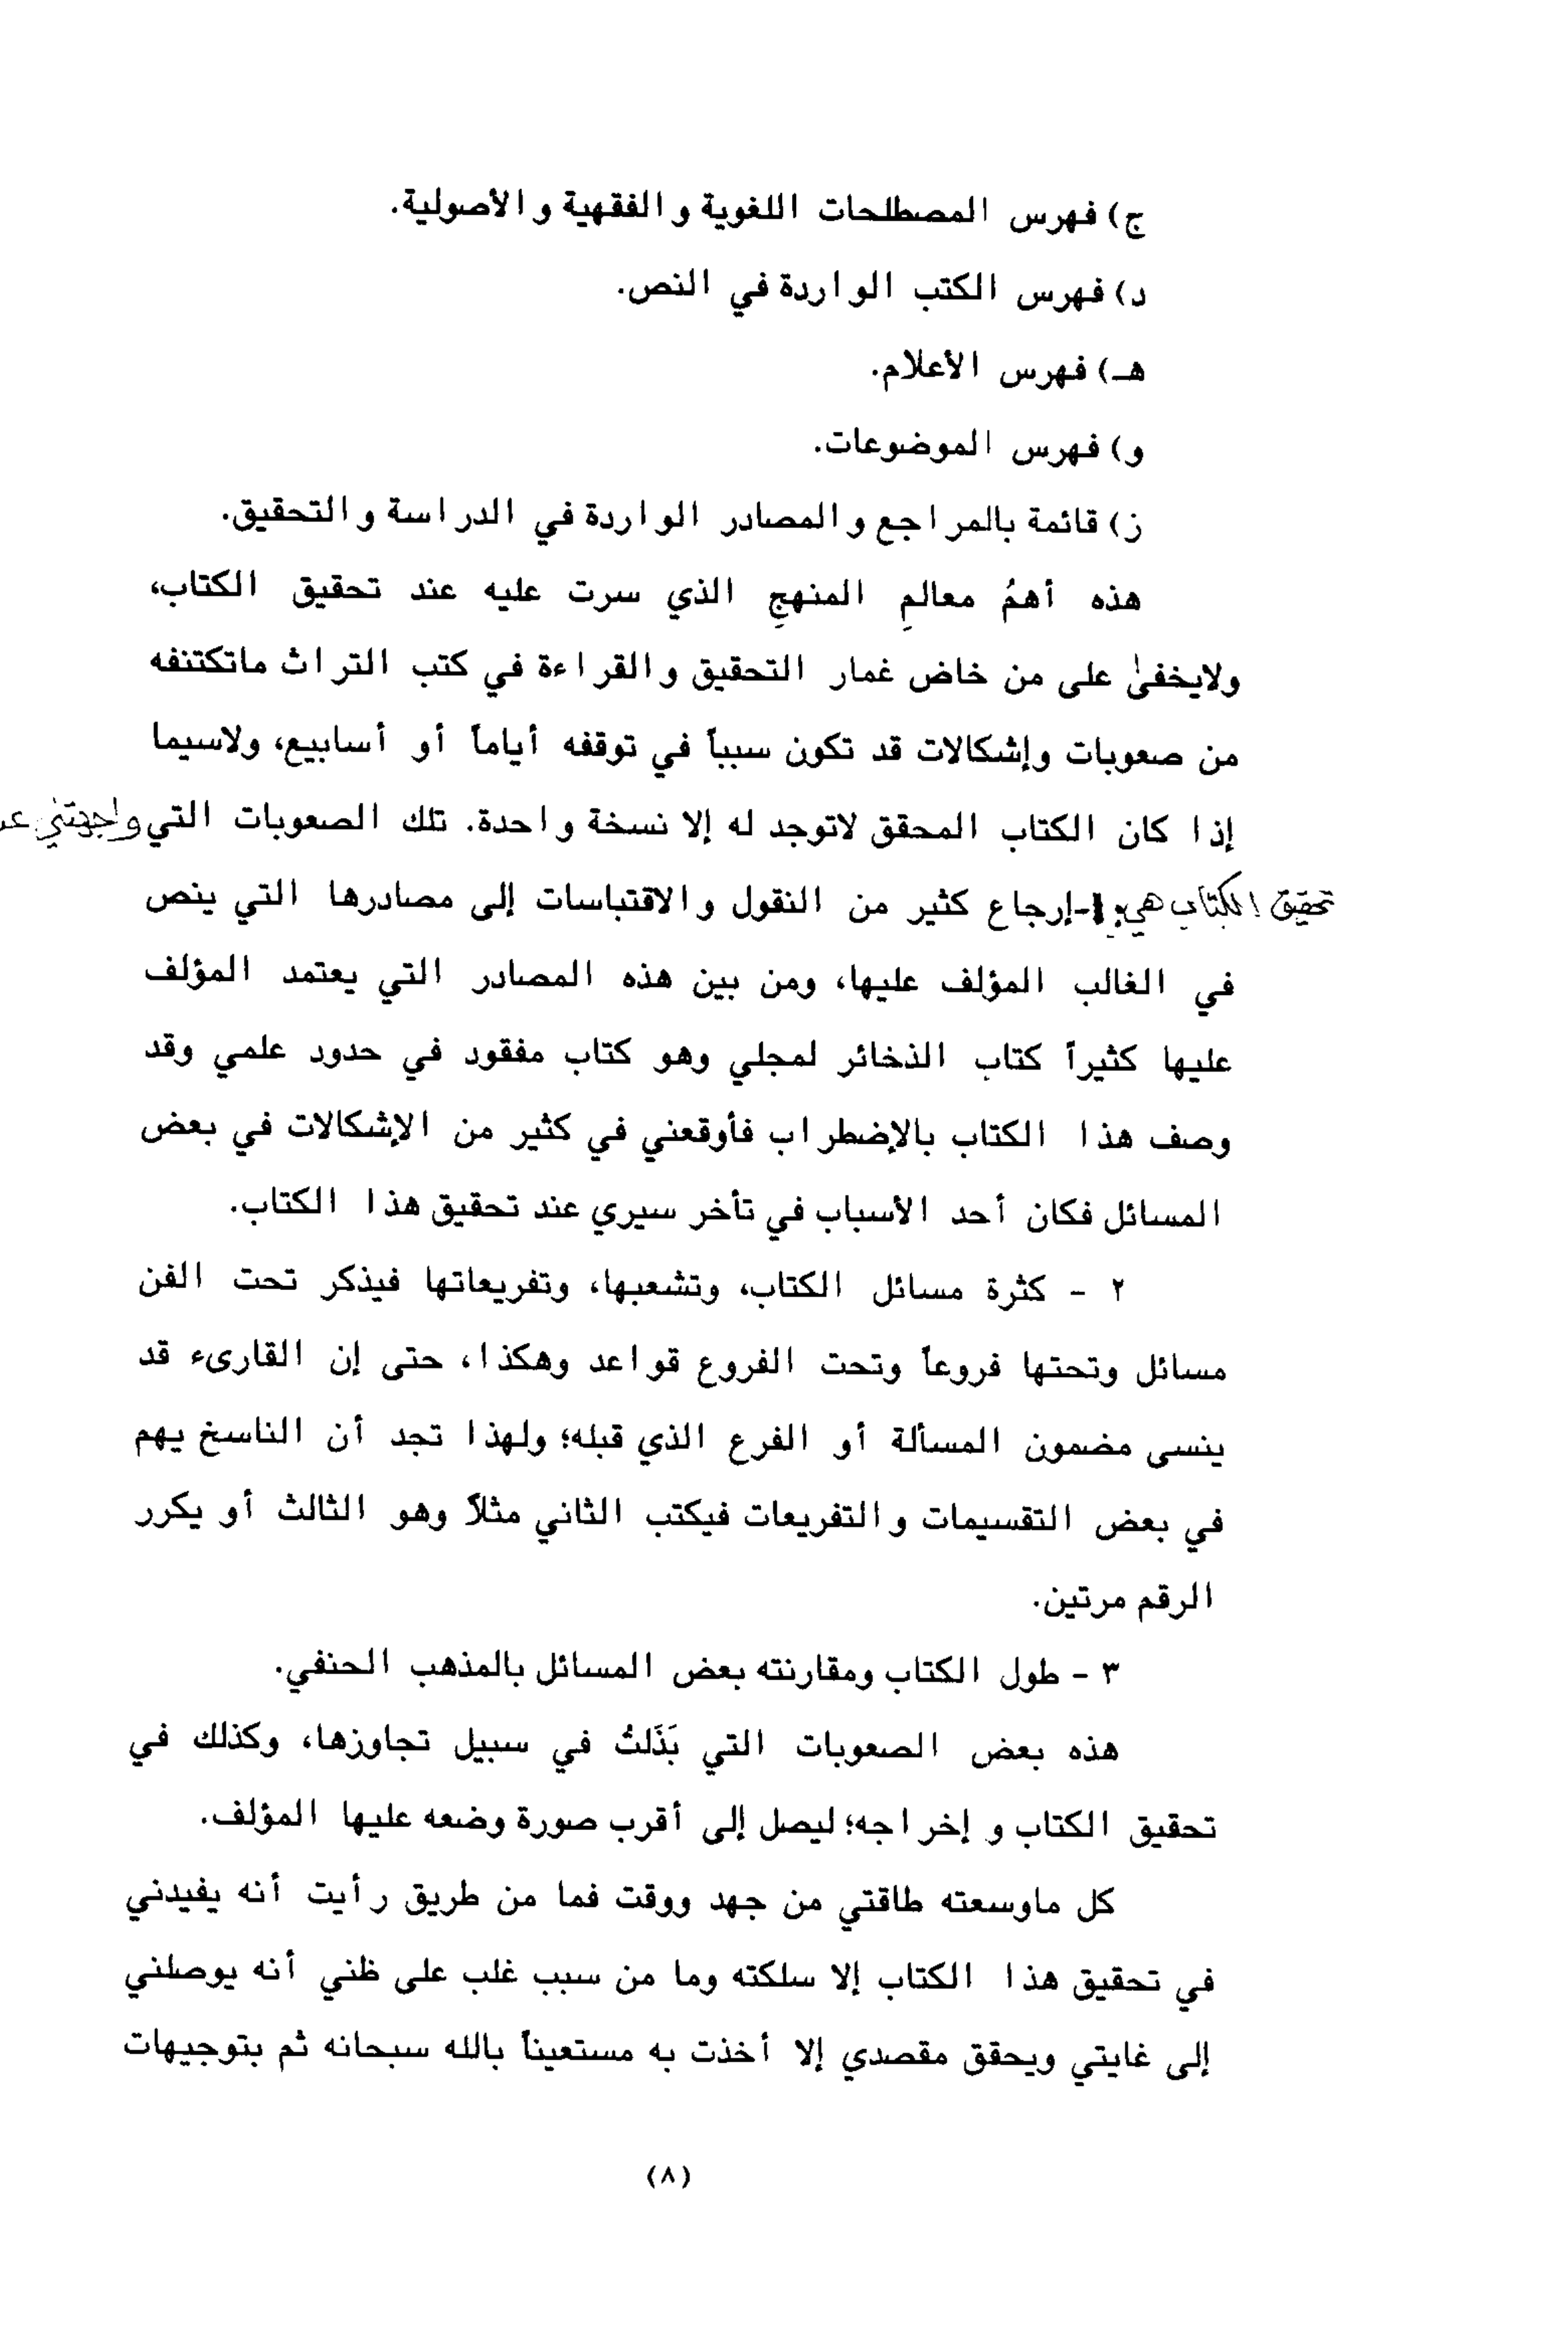 ج) فهرس المصطلحات اللغوية والفقهية والأصولية.
د) فهرس الكتب الواردة في النص.
هـ) فهرس الأعلام.
و) فهرس الموضوعات.
ز) قائمة بالمراجع والمصادر الواردة في الدراسة والتحقيق.
هذه أهمُ معالمِ المنهجِ الذي سرت عليه عند تحقيق الكتاب،
ولايخفىٰ على من خاض غمار التحقيق والقراءة في كتب التراث ماتكتنفه
من صعوبات وإشكالات قد تكون سبباً في توقفه أياماً أو أسابيع، ولاسيما
إذا كان الكتاب المحقق لاتوجد له إلا نسخة واحدة. تلك الصعوبات التي واجهتني
تحقيق الكتاب هي: ١-إرجاع كثير من النقول والاقتباسات إلى مصادرها التي ينص
في الغالب المؤلف عليها، ومن بين هذه المصادر التي يعتمد المؤلف
عليها كثيراً كتاب الذخائر لمجلي وهو كتاب مفقود في حدود علمي وقد
وصف هذا الكتاب بالإضطراب فأوقعني في كثير من الإشكالات في بعض
المسائل فكان أحد الأسباب في تأخر سيري عند تحقيق هذا الكتاب.
٢ - كثرة مسائل الكتاب، وتشعبها، وتفريعاتها فيذكر تحت الفن
مسائل وتحتها فروعاً وتحت الفروع قواعد وهكذا، حتى إن القارىء قد
ينسى مضمون المسألة أو الفرع الذي قبله؛ ولهذا تجد أن الناسخ يهم
في بعض التقسيمات والتفريعات فيكتب الثاني مثلاً وهو الثالث أو يكرر
الرقم مرتين.
٣ - طول الكتاب ومقارنته بعض المسائل بالمذهب الحنفي.
هذه بعض الصعوبات التي بَذَلتُ في سبيل تجاوزها، وكذلك في
تحقيق الكتاب و إخراجه؛ ليصل إلى أقرب صورة وضعه عليها المؤلف.
كل ماوسعته طاقتي من جهد ووقت فما من طريق رأيت أنه يفيدني
في تحقيق هذا الكتاب إلا سلكته وما من سبب غلب على ظني أنه يوصلني
إلى غايتي ويحقق مقصدي إلا أخذت به مستعيناً بالله سبحانه ثم بتوجيهات
(٨)